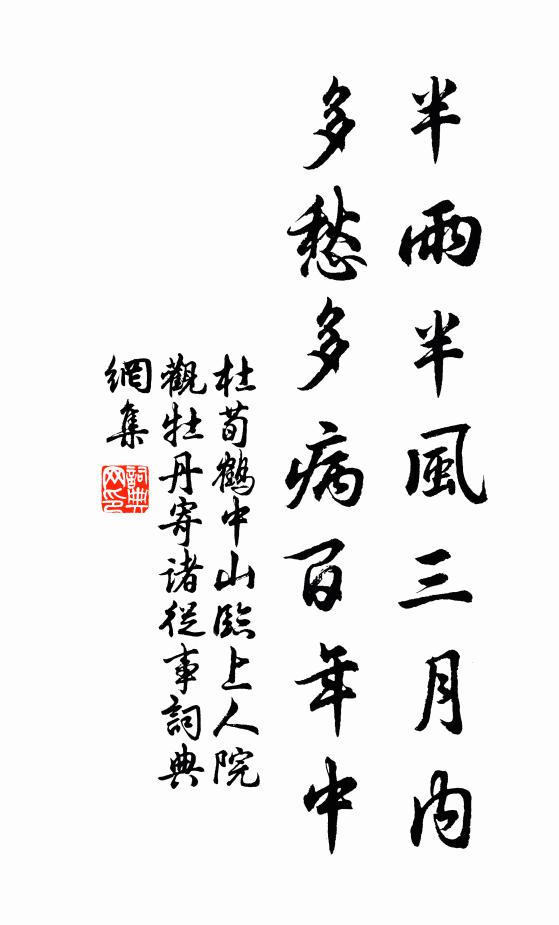 半雨半風三月內
多愁多病百年中
杜荀鶴中山臨上人院
觀牡丹寄諸從事詞典
網集